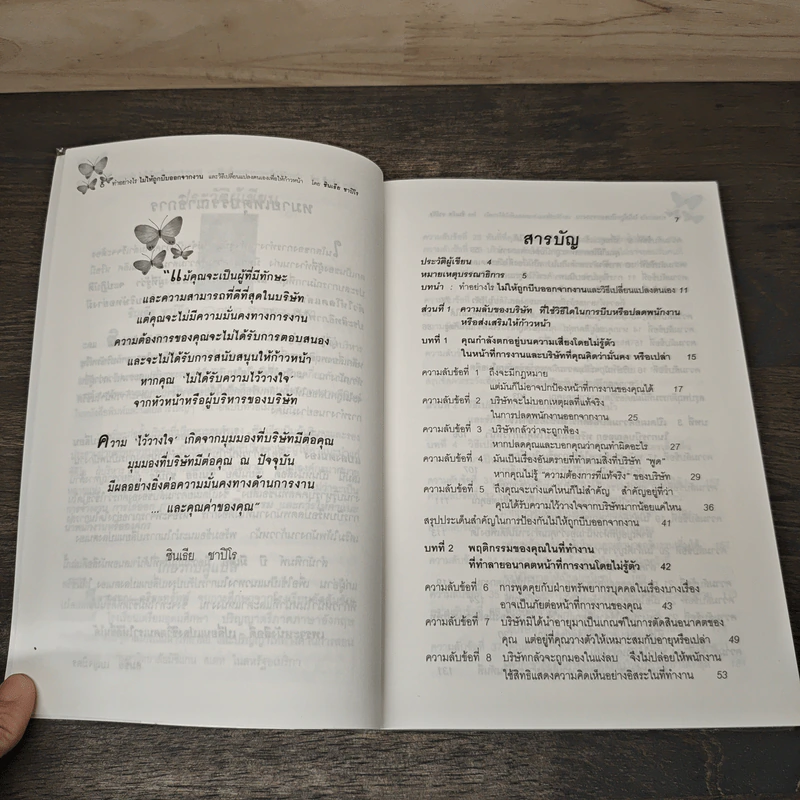 ทำอย่างไร ไม่ให้ถูกบีบออกจากงาน และวิธีเปลี่ยนแปลงตนเองเพื่อให้ก้าวหน้า โดย ซินเธีย ชาปิโร
"แม้คุณจะเป็นผู้ที่มีทักษะ
และความสามารถที่ดีที่สุดในบริษัท
แต่คุณจะไม่มีความมั่นคงทางการงาน
ความต้องการของคุณจะไม่ได้รับการตอบสนอง
และจะไม่ได้รับการสนับสนุนให้ก้าวหน้า
หากคุณ 'ไม่ได้รับความไว้วางใจ'
จากหัวหน้าหรือผู้บริหารของบริษัท
ความ 'ไว้วางใจ' เกิดจากมุมมองที่บริษัทมีต่อคุณ
มุมมองที่บริษัทมีต่อคุณ ณ ปัจจุบัน
มีผลอย่างยิ่งต่อความมั่นคงทางด้านการงาน
... และคุณค่าของคุณ"
ซินเธีย ชาปิโร
7
สารบัญ
ประวัติผู้เขียน 4
หมายเหตุบรรณาธิการ 5
บทนำ : ทำอย่างไร ไม่ให้ถูกบีบออกจากงานและวิธีเปลี่ยนแปลงตนเอง 11
ส่วนที่ 1 ความลับของบริษัท ที่ใช้วิธีใดในการบีบหรือปลดพนักงาน
หรือส่งเสริมให้ก้าวหน้า
บทที่ 1 คุณกำลังตกอยู่บนความเสี่ยงโดยไม่รู้ตัว
ในหน้าที่การงานและบริษัทที่คุณคิดว่ามั่นคง หรือเปล่า 15
ความลับข้อที่ 1 ถึงจะมีกฎหมาย
แต่มันก็ไม่อาจปกป้องหน้าที่การงานของคุณได้ 17
ความลับข้อที่ 2 บริษัทจะไม่บอกเหตุผลที่แท้จริง
ในการปลดพนักงานออกจากงาน 25
ความลับข้อที่ 3 บริษัทกลัวว่าจะถูกฟ้อง
หากปลดคุณและบอกคุณว่าคุณทำผิดอะไร 27
ความลับข้อที่ 4 มันเป็นเรื่องอันตรายที่ทำตามสิ่งที่บริษัท "พูด"
หากคุณไม่รู้ "ความต้องการที่แท้จริง" ของบริษัท 29
ความลับข้อที่ 5 ถึงคุณจะเก่งแค่ไหนก็ไม่สำคัญ สำคัญอยู่ที่ว่า
คุณได้รับความไว้วางใจจากบริษัทมากน้อยแค่ไหน 36
สรุปประเด็นสำคัญในการป้องกันไม่ให้ถูกบีบออกจากงาน 41
บทที่ 2 พฤติกรรมของคุณในที่ทำงาน
ที่ทำลายอนาคตหน้าที่การงานโดยไม่รู้ตัว 42
ความลับข้อที่ 6 การพูดคุยกับฝ่ายทรัพยากรบุคคลในเรื่องบางเรื่อง
อาจเป็นภัยต่อหน้าที่การงานของคุณ 43
ความลับข้อที่ 7 บริษัทมิได้นำอายุมาเป็นเกณฑ์ในการตัดสินอนาคตของ
คุณ แต่อยู่ที่คุณวางตัวให้เหมาะสมกับอายุหรือเปล่า 49
ความลับข้อที่ 8 บริษัทกลัวจะถูกมองในแง่ลบ จึงไม่ปล่อยให้พนักงาน
ใช้สิทธิแสดงความคิดเห็นอย่างอิสระในที่ทำงาน 53